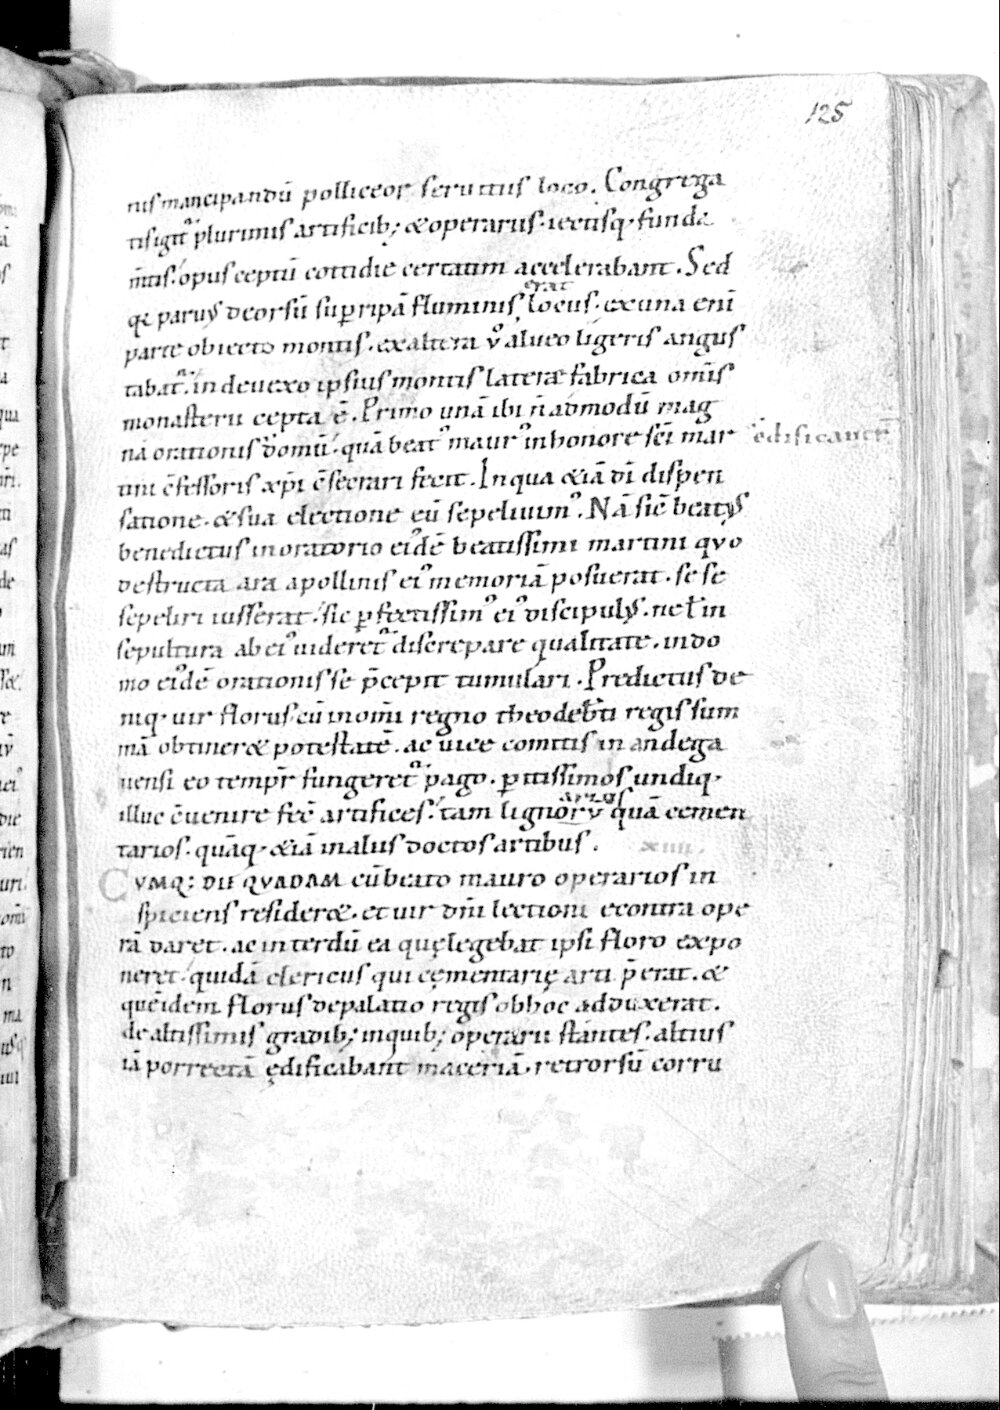 125
tus mancipandū polliceor seruitus loco. Congrega
tis igit᷑ plurimis artificib; & operariis. iectisq· funda
m̄tis. opus ceptū cottidie certatim accelerabant. Sed
qa paruꝰ deorsū suꝑ ripā fluminis erat locus. ex una eni
parte obiecto montis. ex altera v̊ alueo ligeris angus
tabat᷑. in deuexo ipsius montis latere fabrica om̄is
monasterii cepta ē. Primo unā ibi n̄ admodū mag
nā orationis domū. quā beatꝰ maurꝰ in honore sc̄i mar edificauit
tini c̄fessoris xp̄i c̄secrari fecit. In qua & iā dī dispen
satione. & sua electione eū sepeliuimꝰ. Nā sic̄ beatꝰ
benedictus in oratorio eidē beatissimi martini qvo
destructa ara apollinis eiꝰ memoriā posuerat. se se
sepeliri iusserat. sic ꝑfectissimꝰ eiꝰ discipulꝰ. ne ł in
sepultura ab eiꝰ uideret᷑ discrepare qualitate. in do
mo eidē orationis se p̄cepit tumulari. Predictus de
niq· uir florus cū in om̄i regno theodeb̄ti regis sum
mā obtineret potestatē. ac uice comitis in andega
uensi eo tempr̄ fungeret᷑ pago. ꝑitissimos undiq·
illuc c̄uenire fec̄ artifices. tam lignorv̄ arios quā cemen
tarios. quāq· & iā in aliis doctos artibus. xiiii.
CVMQ; DIE QVADAM cū beato mauro operarios in
spiciens resideret. et uir dn̄i lectioni econtra ope
rā daret. ac interdū ea quę legebat ipsi floro expo
neret. quidā clericus qui cęmentarię arti p̄erat. &
quē idem florus de palatio regis ob hoc adduxerat.
de altissimis gradib; in quib; operarii stantes. altius
iā porrectā ędificabant maceriā. retrorsū corru